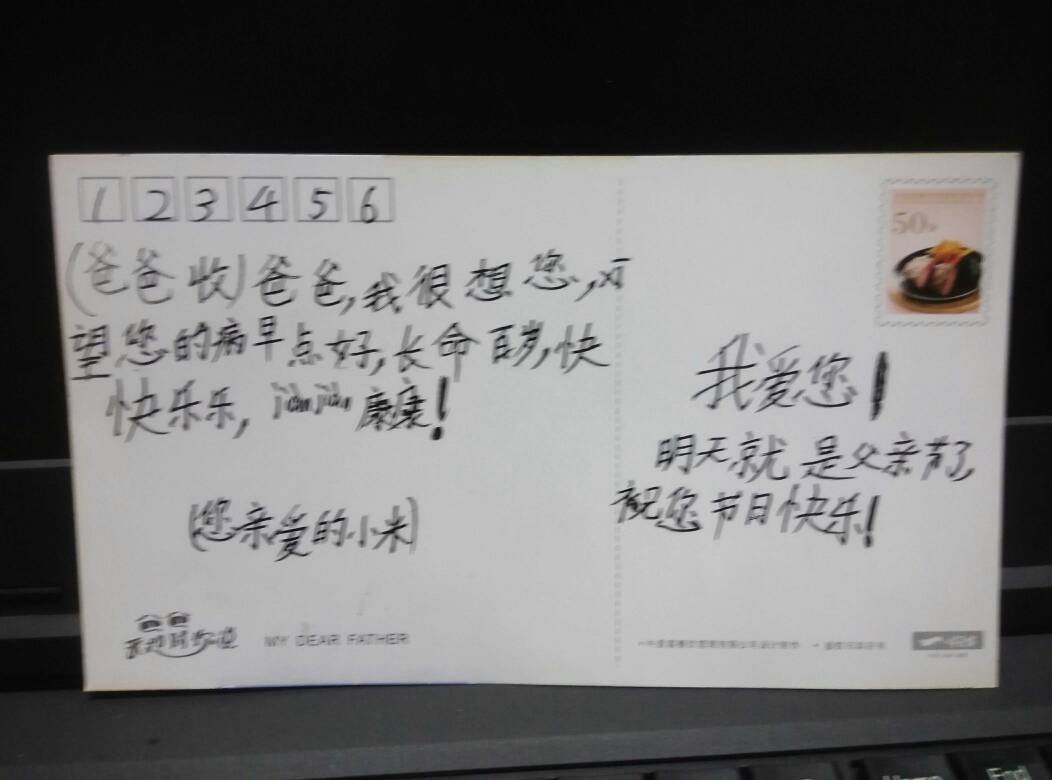 1 2 3 4 5 6
(爸爸收)爸爸,我很想您,
望您的病早点好,长命百岁,快
快乐乐, jiànjiàn 康康!
(您亲爱的小米)
MY DEAR FATHER
50
我爱您!
明天就是父亲节了,
祝您节日快乐!